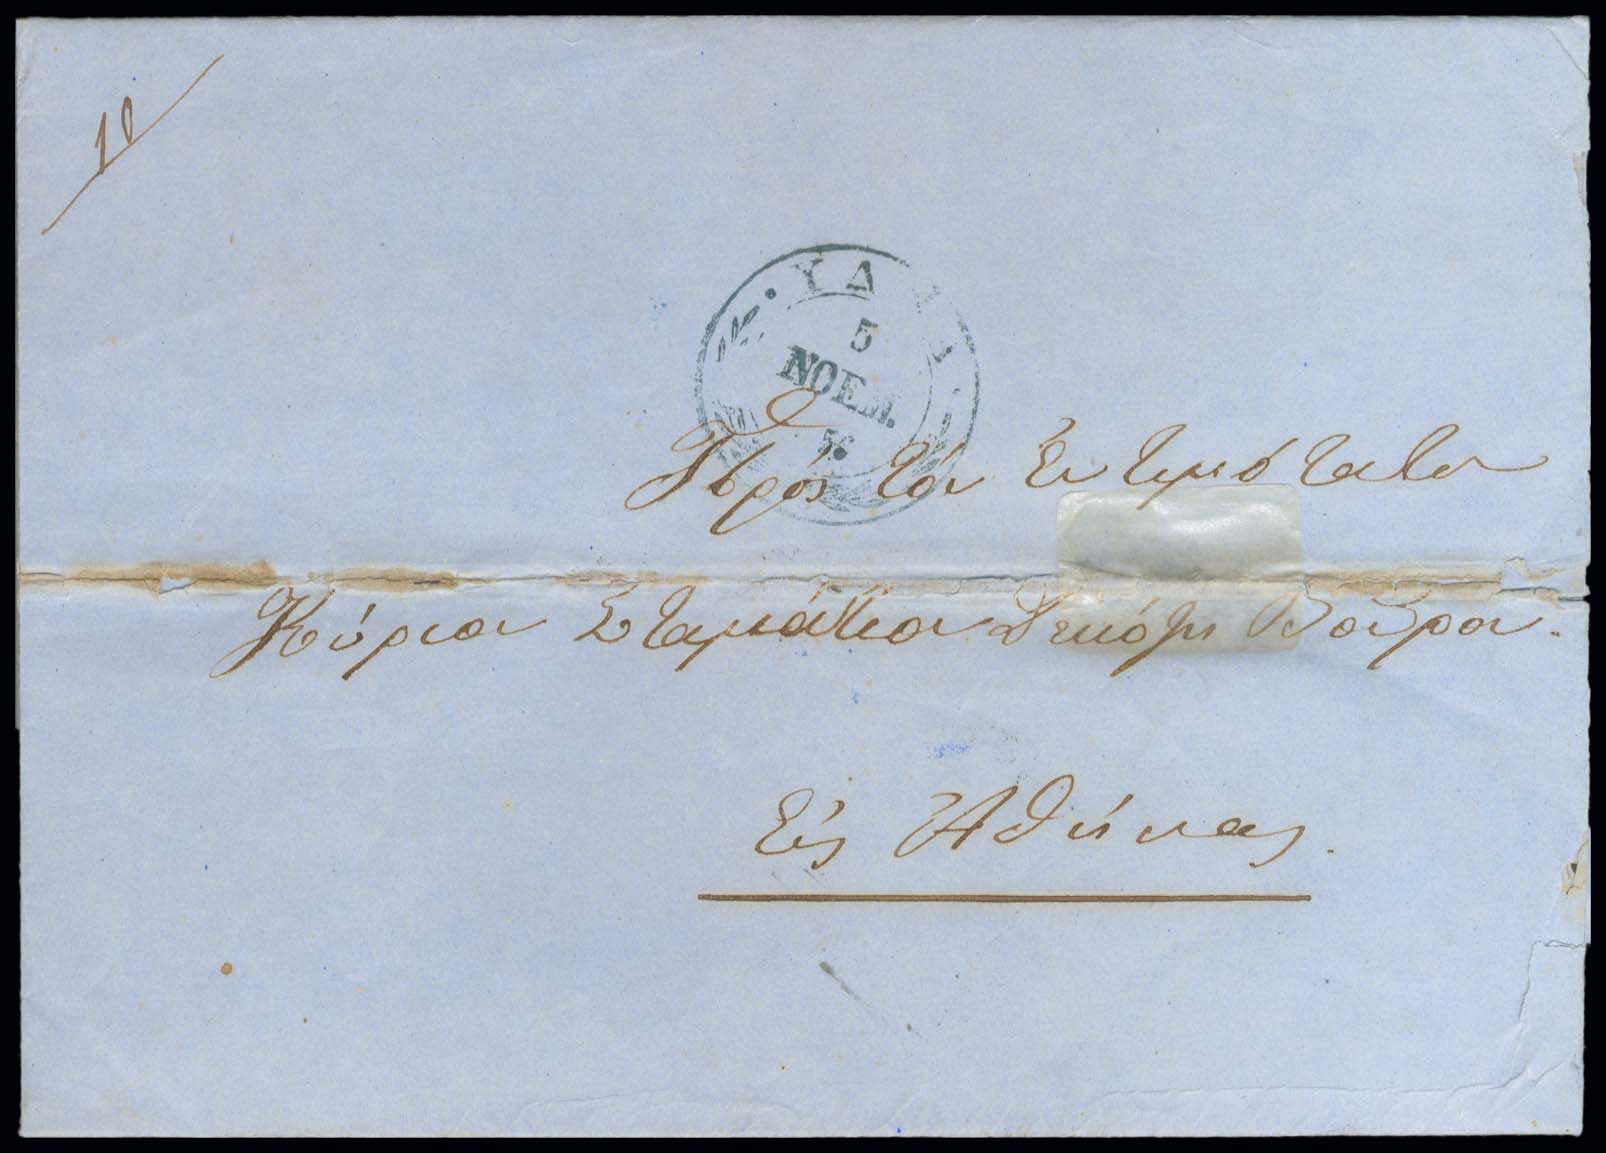 10
ΥΔΡΑ
5
ΝΟΕΜ.
56
Πρὸς τὸν Ἐντιμότατον
Κύριον Σταμάτιον Δεκόζη Βοῦρον.
Εἰς Ἀθήνας.